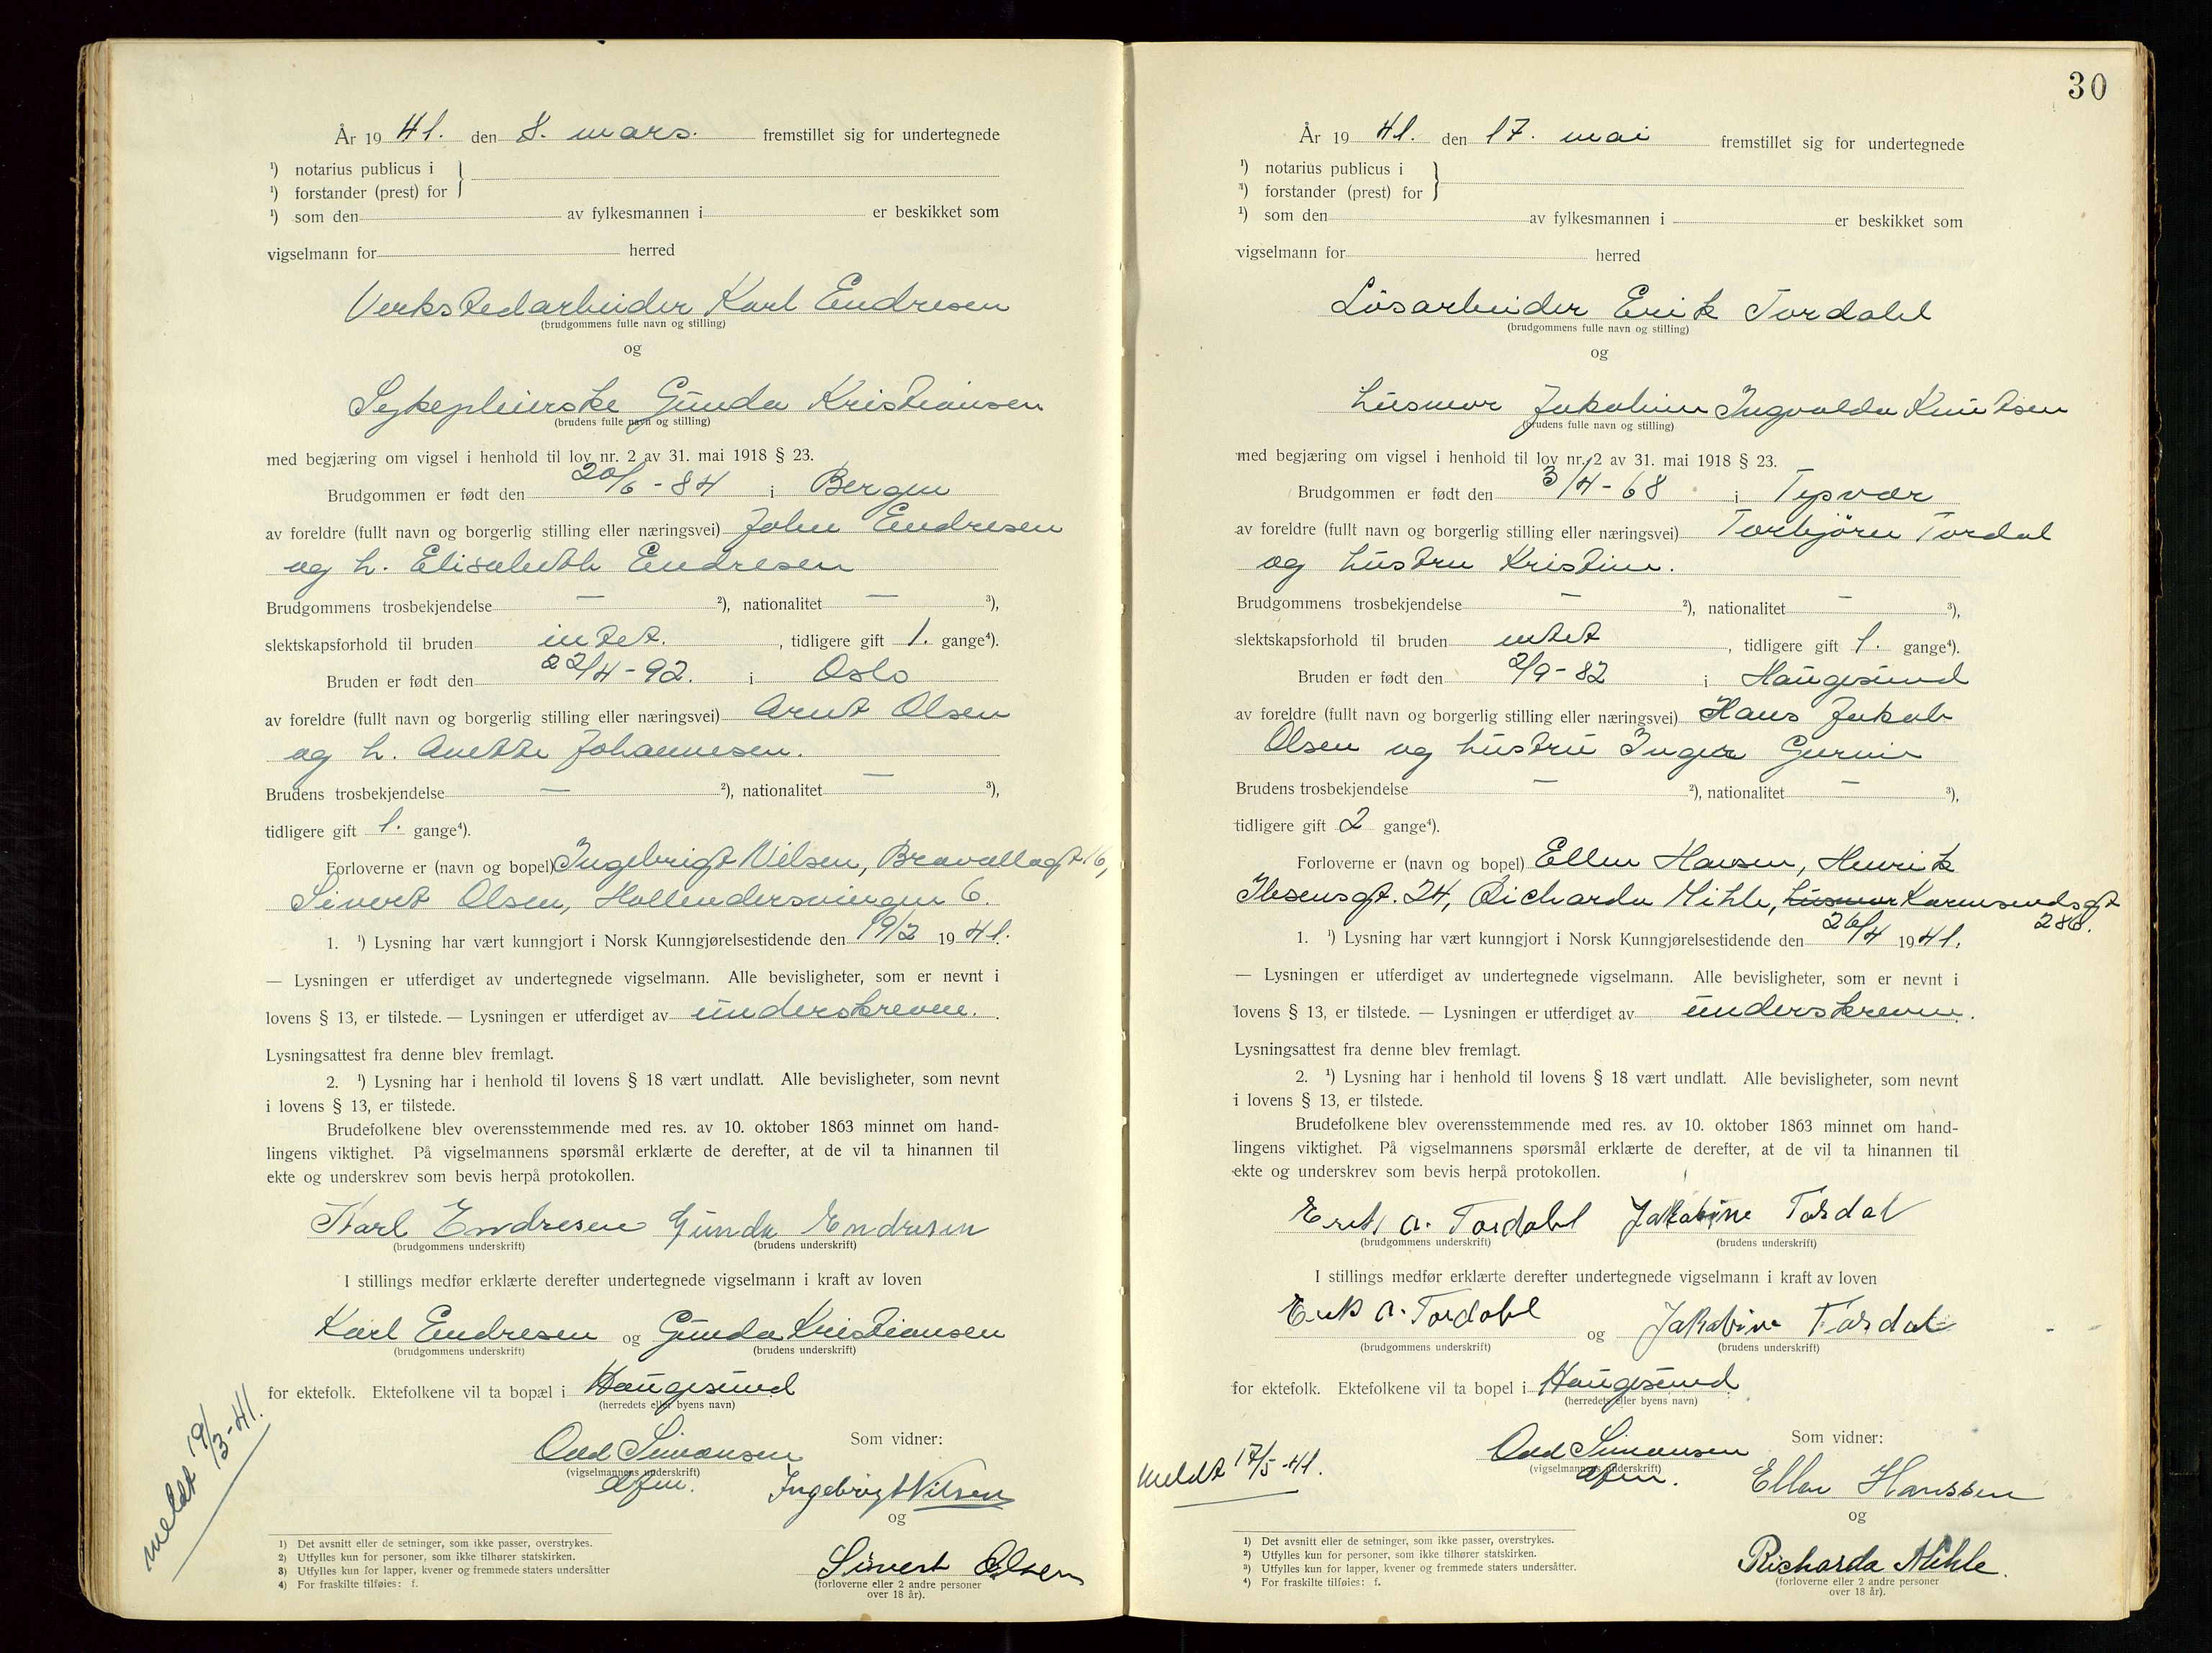 År 19 41. den 8. mars. fremstillet sig for undertegnede
¹) notarius publicus i
¹) forstander (prest) for
¹) som den av fylkesmannen i er beskikket som
vigselmann for herred
Verkstedarbeider Karl Endresen
(brudgommens fulle navn og stilling)
og
Sykepleierske Gunda Kristiansen
(brudens fulle navn og stilling)
med begjæring om vigsel i henhold til lov nr. 2 av 31. mai 1918 § 23.
Brudgommen er født den 20/6 - 84 i Bergen
av foreldre (fullt navn og borgerlig stilling eller næringsvei) John Endresen
og h. Elisabeth Endresen
Brudgommens trosbekjendelse — ²), nationalitet — ³),
slektskapsforhold til bruden intet. , tidligere gift 1. gange⁴).
Bruden er født den 22/4 - 92. i Oslo
av foreldre (fullt navn og borgerlig stilling eller næringsvei) Arnt Olsen
og h. Anette Johannesen.
Brudens trosbekjendelse — ²), nationalitet — ³),
tidligere gift 1. gange⁴).
Forloverne er (navn og bopel) Ingebrigt Nilsen, Bravallagt 16,
Sivert Olsen, Hollendersvingen 6.
1. ¹) Lysning har vært kunngjort i Norsk Kunngjørelsestidende den 19/2 19 41.
— Lysningen er utferdiget av undertegnede vigselmann. Alle bevisligheter, som er nevnt i
lovens § 13, er tilstede. — Lysningen er utferdiget av underskrevne.
Lysningsattest fra denne blev fremlagt.
2. ¹) Lysning har i henhold til lovens § 18 vært undlatt. Alle bevisligheter, som nevnt
i lovens § 13, er tilstede.
Brudefolkene blev overensstemmende med res. av 10. oktober 1863 minnet om hand-
lingens viktighet. På vigselmannens spørsmål erklærte de derefter, at de vil ta hinannen til
ekte og underskrev som bevis herpå protokollen.
Karl Endresen Gunda Endresen
(brudgommens underskrift) (brudens underskrift)
I stillings medfør erklærte derefter undertegnede vigselmann i kraft av loven
Karl Endresen og Gunda Kristiansen
(brudgommens underskrift) (brudens underskrift)
for ektefolk. Ektefolkene vil ta bopæl i Haugesund
(herredets eller byens navn)
meldt 19/3-41.
Odd Simonsen Som vidner:
(vigselmannens underskrift)
dfm. Ingebrigt Nilsen
og
Sivert Olsen
(forloverne eller 2 andre personer
over 18 år).
1) Det avsnitt eller de setninger, som ikke passer, overstrykes.
2) Utfylles kun for personer, som ikke tilhører statskirken.
3) Utfylles kun for lapper, kvener og fremmede staters undersåtter
4) For fraskilte tilføies: f.
30
År 19 41. den 17. mai fremstillet sig for undertegnede
¹) notarius publicus i
¹) forstander (prest) for
¹) som den av fylkesmannen i er beskikket som
vigselmann for herred
Løsarbeider Erik Tordahl
(brudgommens fulle navn og stilling)
og
husmor Jakobine Ingvalda Knutsen
(brudens fulle navn og stilling)
med begjæring om vigsel i henhold til lov nr. 2 av 31. mai 1918 § 23.
Brudgommen er født den 3/4 - 68 i Tysvær
av foreldre (fullt navn og borgerlig stilling eller næringsvei) Torbjørn Tordal
og hustru Kristine.
Brudgommens trosbekjendelse — ²), nationalitet — ³),
slektskapsforhold til bruden intet , tidligere gift 1. gange⁴).
Bruden er født den 2/9 - 82 i Haugesund
av foreldre (fullt navn og borgerlig stilling eller næringsvei) Hans Jakob
Olsen og hustru Inger Gurine
Brudens trosbekjendelse — ²), nationalitet — ³),
tidligere gift 2 gange⁴).
Forloverne er (navn og bopel) Ellen Hansen, Henrik
Ibsensgt. 24, Richarda Mihle, husmor Karmsundsgt
286.
1. ¹) Lysning har vært kunngjort i Norsk Kunngjørelsestidende den 26/4 19 41.
— Lysningen er utferdiget av undertegnede vigselmann. Alle bevisligheter, som er nevnt i
lovens § 13, er tilstede. — Lysningen er utferdiget av underskrevne.
Lysningsattest fra denne blev fremlagt.
2. ¹) Lysning har i henhold til lovens § 18 vært undlatt. Alle bevisligheter, som nevnt
i lovens § 13, er tilstede.
Brudefolkene blev overensstemmende med res. av 10. oktober 1863 minnet om hand-
lingens viktighet. På vigselmannens spørsmål erklærte de derefter, at de vil ta hinannen til
ekte og underskrev som bevis herpå protokollen.
Erik A. Tordahl Jakobine Tordal
(brudgommens underskrift) (brudens underskrift)
I stillings medfør erklærte derefter undertegnede vigselmann i kraft av loven
Erik A. Tordahl og Jakobine Tordal
(brudgommens underskrift) (brudens underskrift)
for ektefolk. Ektefolkene vil ta bopel i Haugesund
(herredets eller byens navn)
meldt 17/5-41.
Odd Simonsen Som vidner:
(vigselmannens underskrift)
dfm. Ellen Hanssen
og
Richarda Mihle.
(forloverne eller 2 andre personer
over 18 år).
1) Det avsnitt eller de setninger, som ikke passer, overstrykes.
2) Utfylles kun for personer, som ikke tilhører statskirken.
3) Utfylles kun for lapper, kvener og fremmede staters undersåtter.
4) For fraskilte tilføies: f.